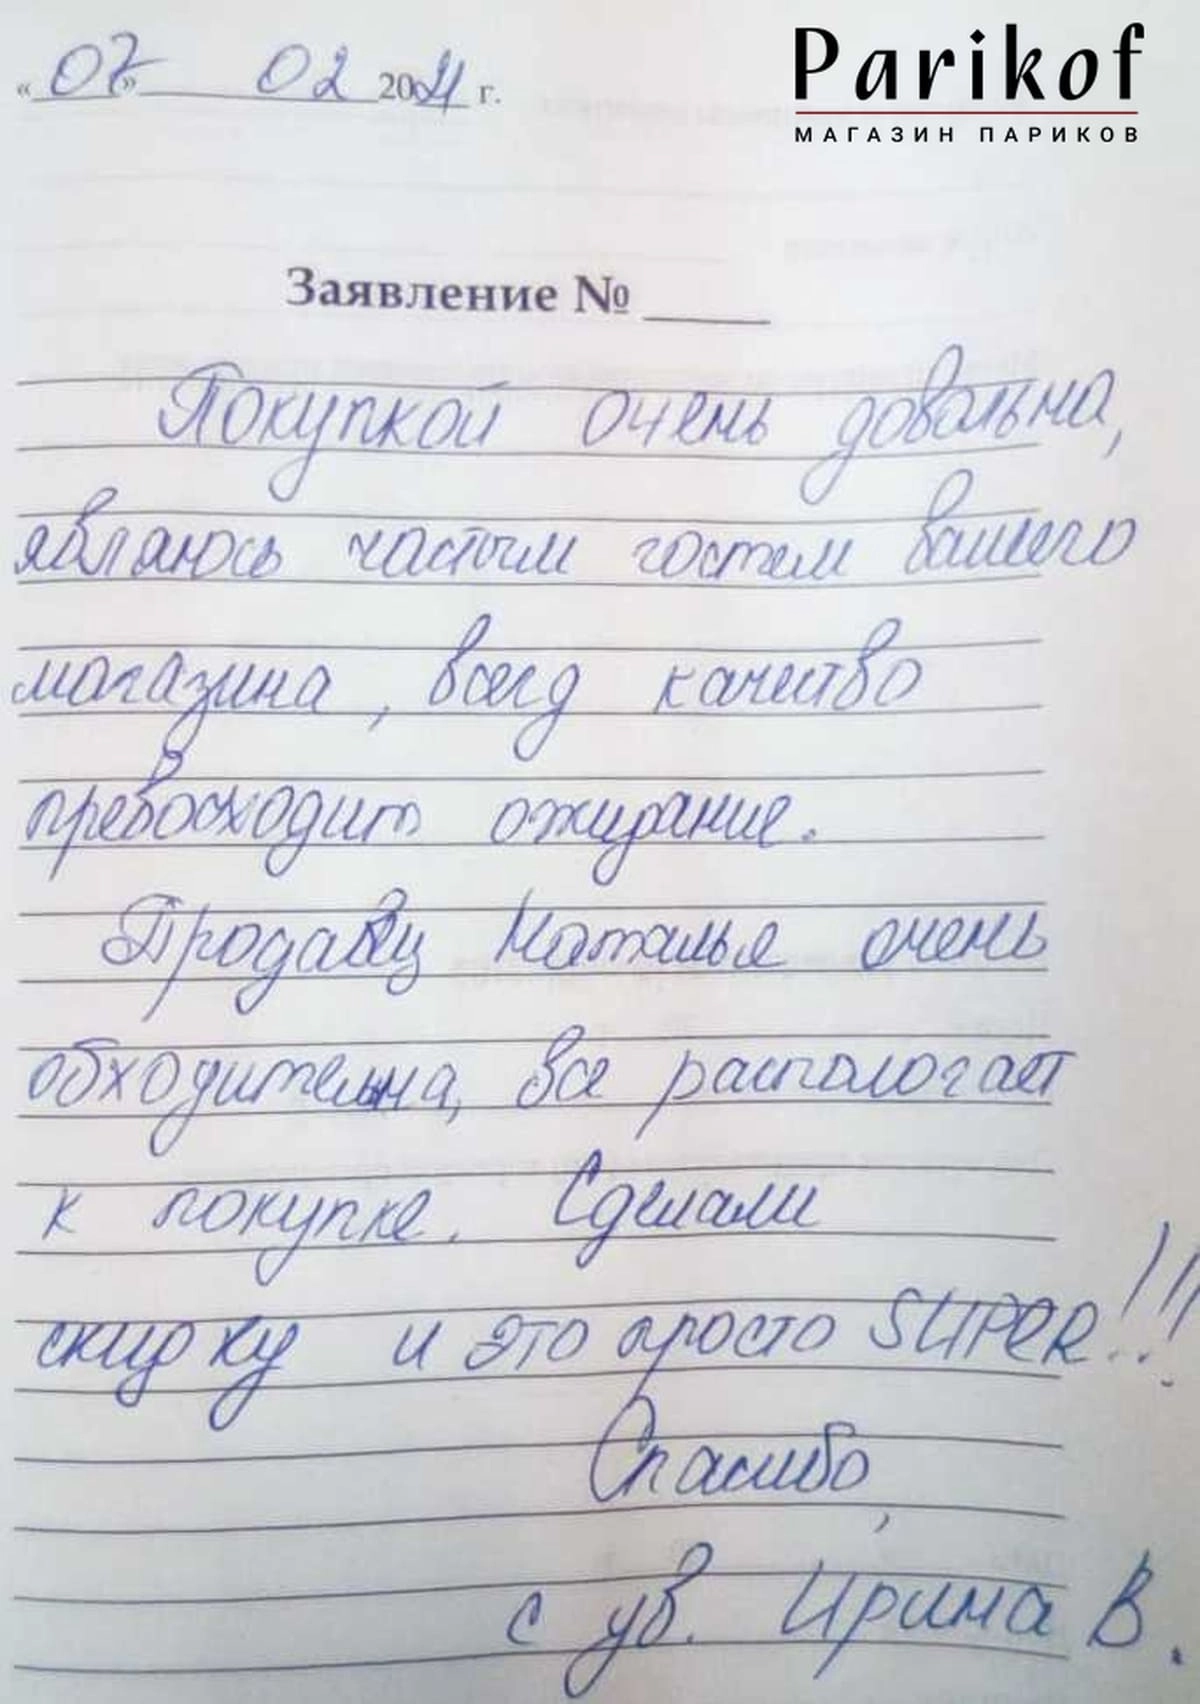 «07» 02 2021 г.
Parikof
МАГАЗИН ПАРИКОВ
Заявление № ____
Покупкой очень довольна,
являюсь частым гостем вашего
магазина, всегд качество
превосходит ожидание.
Продавец Наталья очень
обходительна, все распологает
к покупке. Сделали
скидку и это просто SUPER!!!
Спасибо,
с ув. Ирина В.